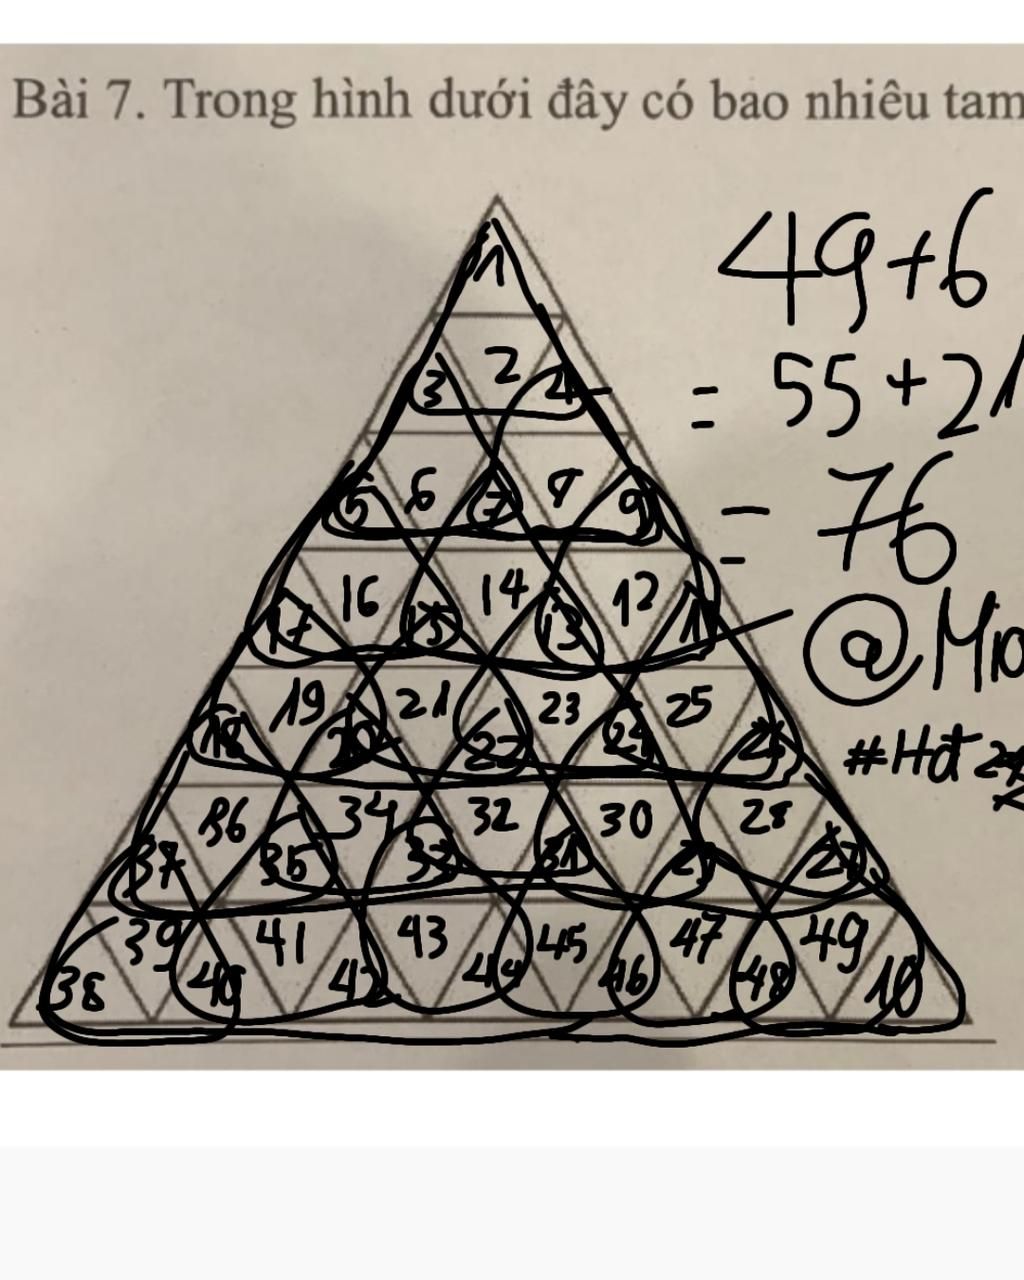 Bài 7. Trong hình dưới đây có bao nhiêu tam
49+6
= 55+21
= 76
1
3 2 4
5 6 7 8 9
17 16 15 14 13 12 11
18 19 20 21 22 23 24 25 26
37 36 35 34 33 32 31 30 29 28 27
38 39 40 41 42 43 44 45 46 47 48 49 10